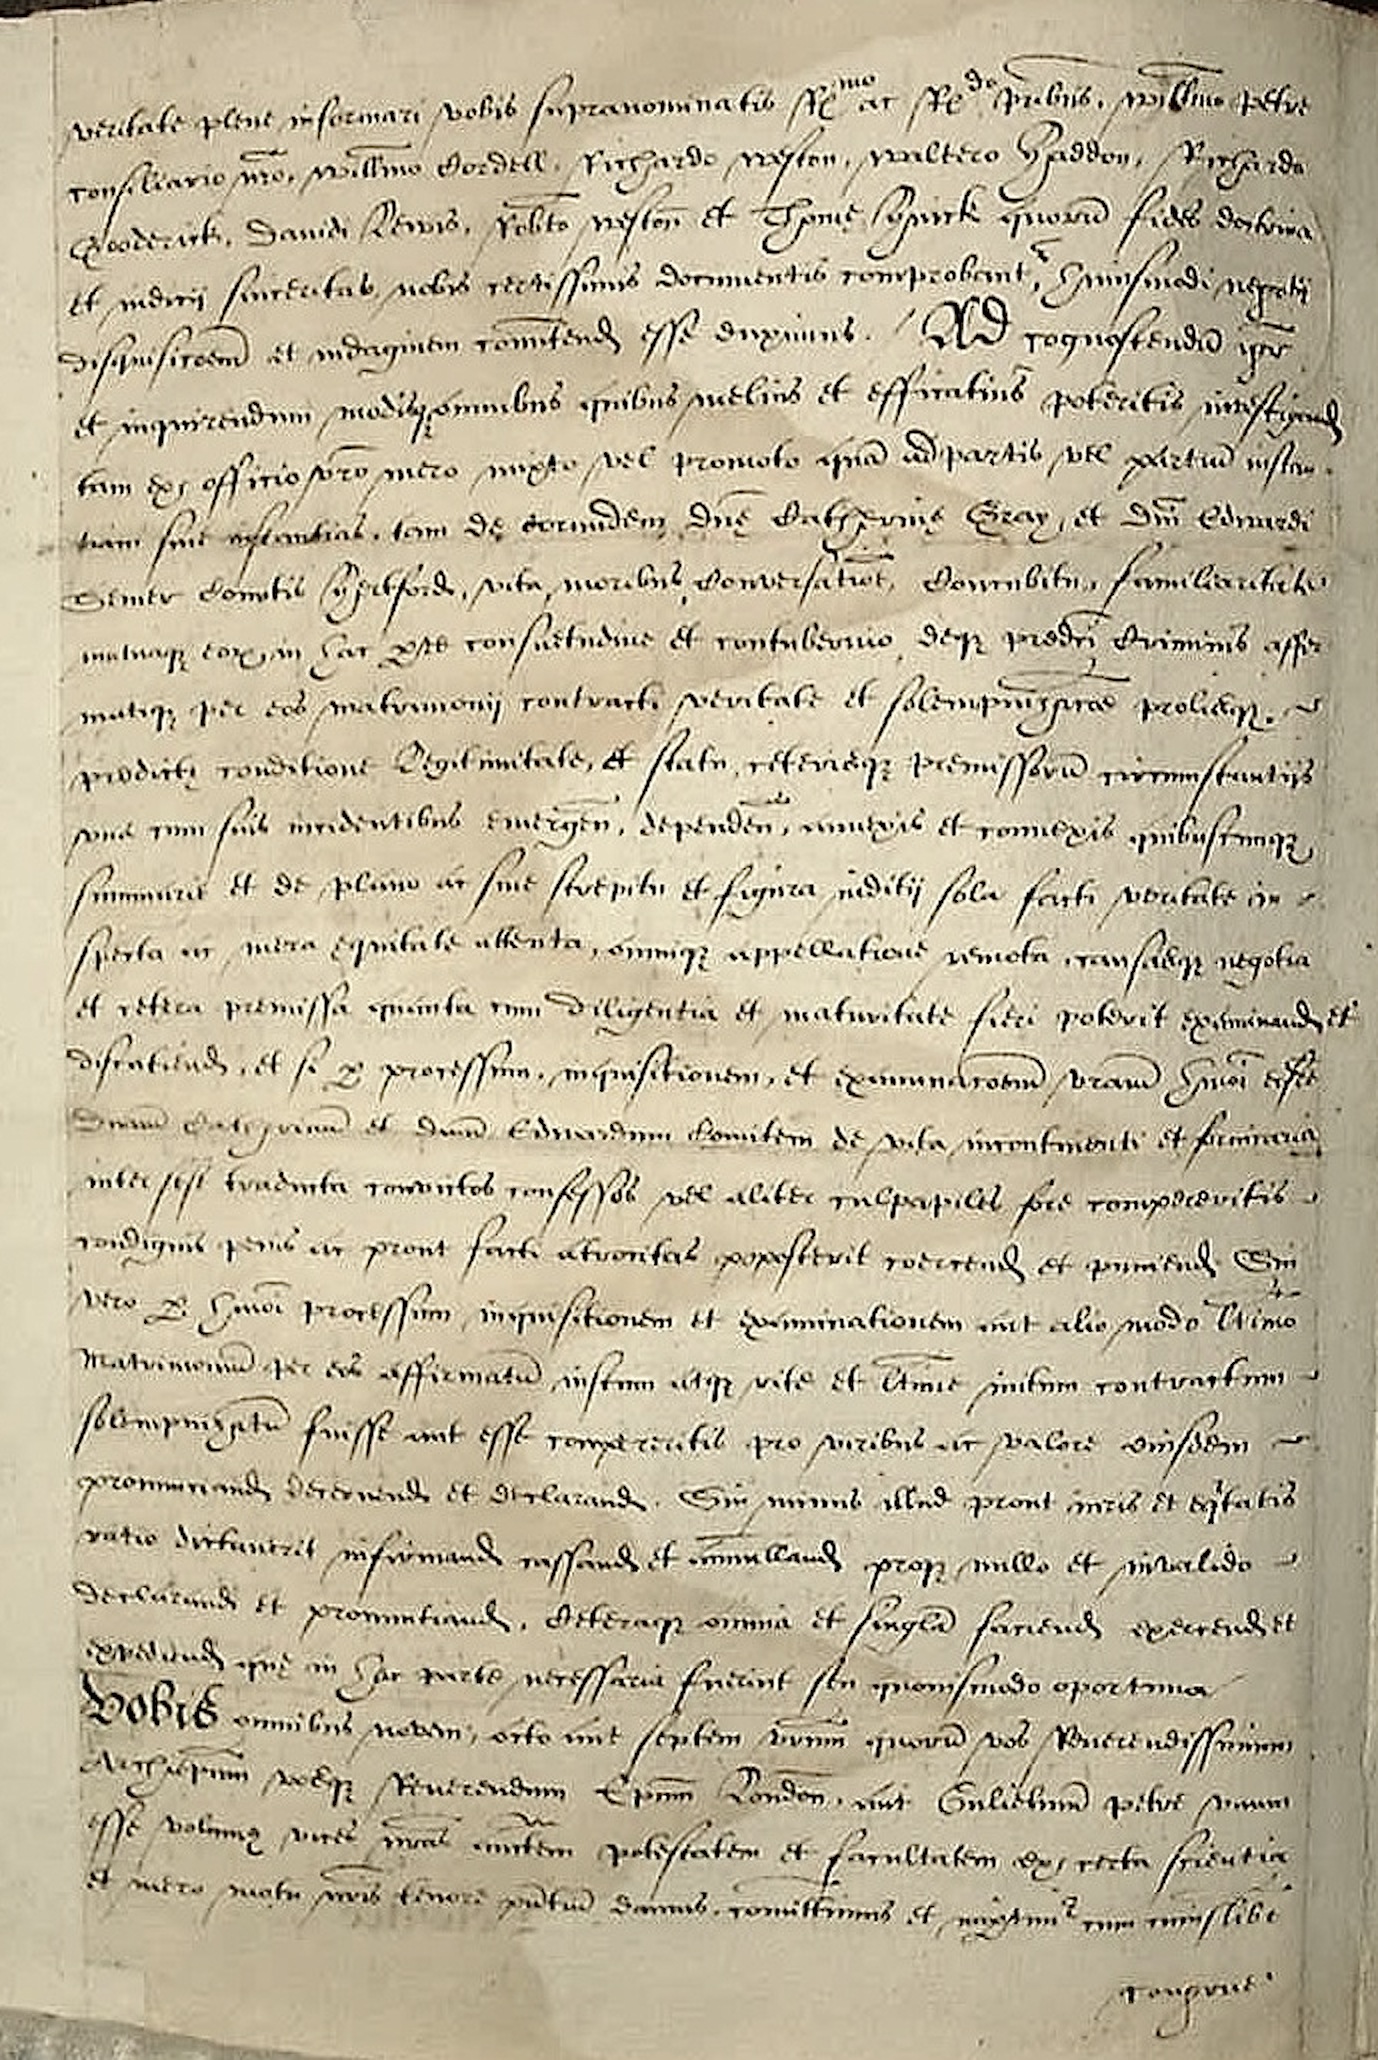 veritate plene informari vobis supranominatis Rx^mo ac Rx^do p̄ribus, Will̄mo Petre
consiliario n̄ro, Will̄mo Cordell, Richardo Weston, Waltero Haddon, Richardo
Gooderick, Davidi Lewis, Rob̄to Weston et Thome Huick quorū fides doctrina
et iudicij sinceritas nobis certissimis documentis comprobant^r, huiusmodi negotij
disquisic̄oem̄ et indaginem com̄ittend esse duximus. Ad cognoscendū ig̅r
et inquirendum modisq̨ omnibus quibus melius et efficatius poteritis investigand
tam ex officio v̄ro mero mixto vel promoto quā ad partis vel partiū instan-
tiam sive instantias, tam de eorundem dn̄e Catherine Gray, et Dn̄i Edwardi
Semer Comitis Hertford, vita, moribus, Conversatiōe, Concubitu, familiaritate
mutuaq̨ eor̨ in hac p̱te consuetudine et contubernio, deq̨ predc̄i Criminis affir
matiq̨ per eos matrimonij contracti veritate et solempniz̄ac̄oe prolisq̨
predicti conditione Legitimitate, et statu, ceterisq̨ premissorū circumstantijs
una cum suis incidentibus emergen̄, dependen̄, annexis et connexis quibuscunq̨
summarie et de plano ac sine strepitu et figura iuditij sola facti veritate in
specta ac mera equitate attenta, omniq̨ appellatione remota, causasq̨ negotia
et cetera premissa quanta cum diligentia et maturitate fieri poterit examinand et
discutiend, et si p̱ processum, inquisitionem, et examinac̄oem̄ vr̄am hm̄oi
Dnām Catherinā et dnūm Edwardum Comitem de vita incontinenti et fornicaria
inter sese traducta convictos confessos vel aliter culpapiles fore compereritis
condignis penis ac prout facti atrocitas poposcerit coercend et puniend Sin
vero p̱ hm̄oi processum, inquisitionem et examinationem aut alio modo l̄timo
Matrimoniū per eos affirmatū iustum atq̨ rite et l̄time initum contractum
solempnizatū fuisse aut esse compereritis pro viribus ac valore eiusdem
pronunciand decernend et declarand. Sin minus illud prout iuris et equitatis
ratio dictaverit infirmand cassand et an̄ulland proq̨ nullo et invalido
declarand et pronuntiand, Ceteraq̨ omnia et singl̄a faciend exercend et
expediend que in hac parte necessaria fuerint seu quovismodo oportuna
Vobis omnibus novem, octo sive septem vr̄um quorū vos Reverendissimum
Archiep̄um vosq̨ Reverendum Ep̄um London, aut Gulielmū Petre unum
esse volumus vices n̄ras auc̄tem potestatem et facultatem ex certa scientia
et mero motu n̄ris tenore p̄ntiū damus, com̄ittimus et cum cuiuslibet
congrue